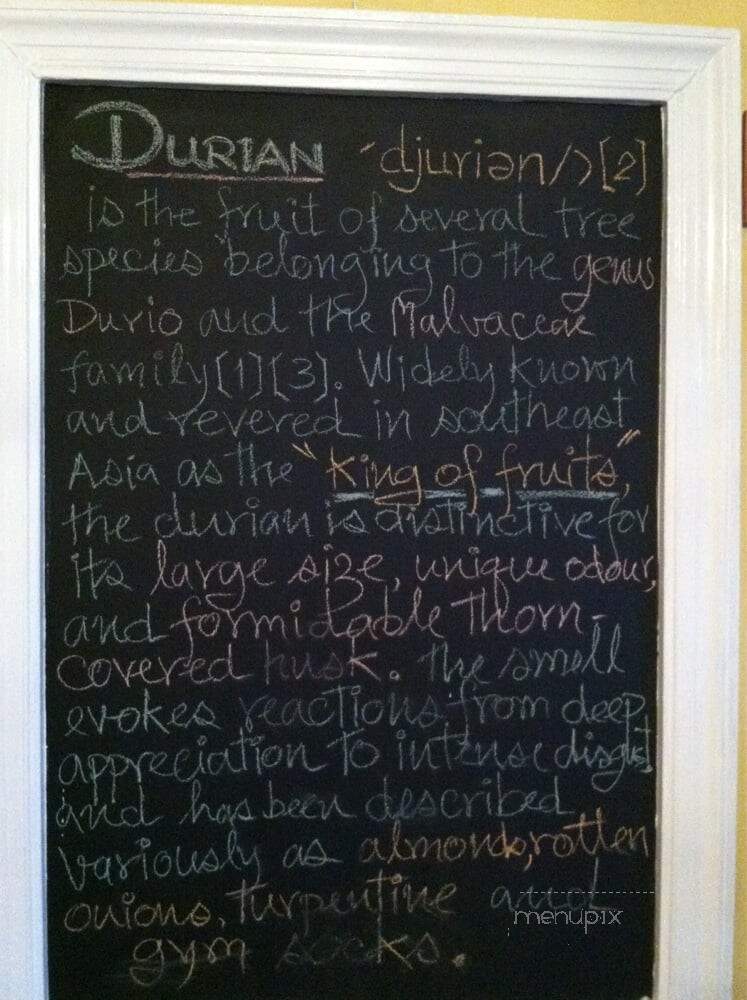 DURIAN ´djuriən/>[2]
is the fruit of several tree
species belonging to the genus
Durio and the Malvaceae
family[1][3]. Widely known
and revered in southeast
Asia as the "king of fruits",
the durian is distinctive for
its large size, unique odour,
and formidable thorn-
covered husk. the smell
evokes reactions from deep
appreciation to intense disgust
and has been described
variously as almonds, rotten
onions, turpentine and
menupix
gym socks.